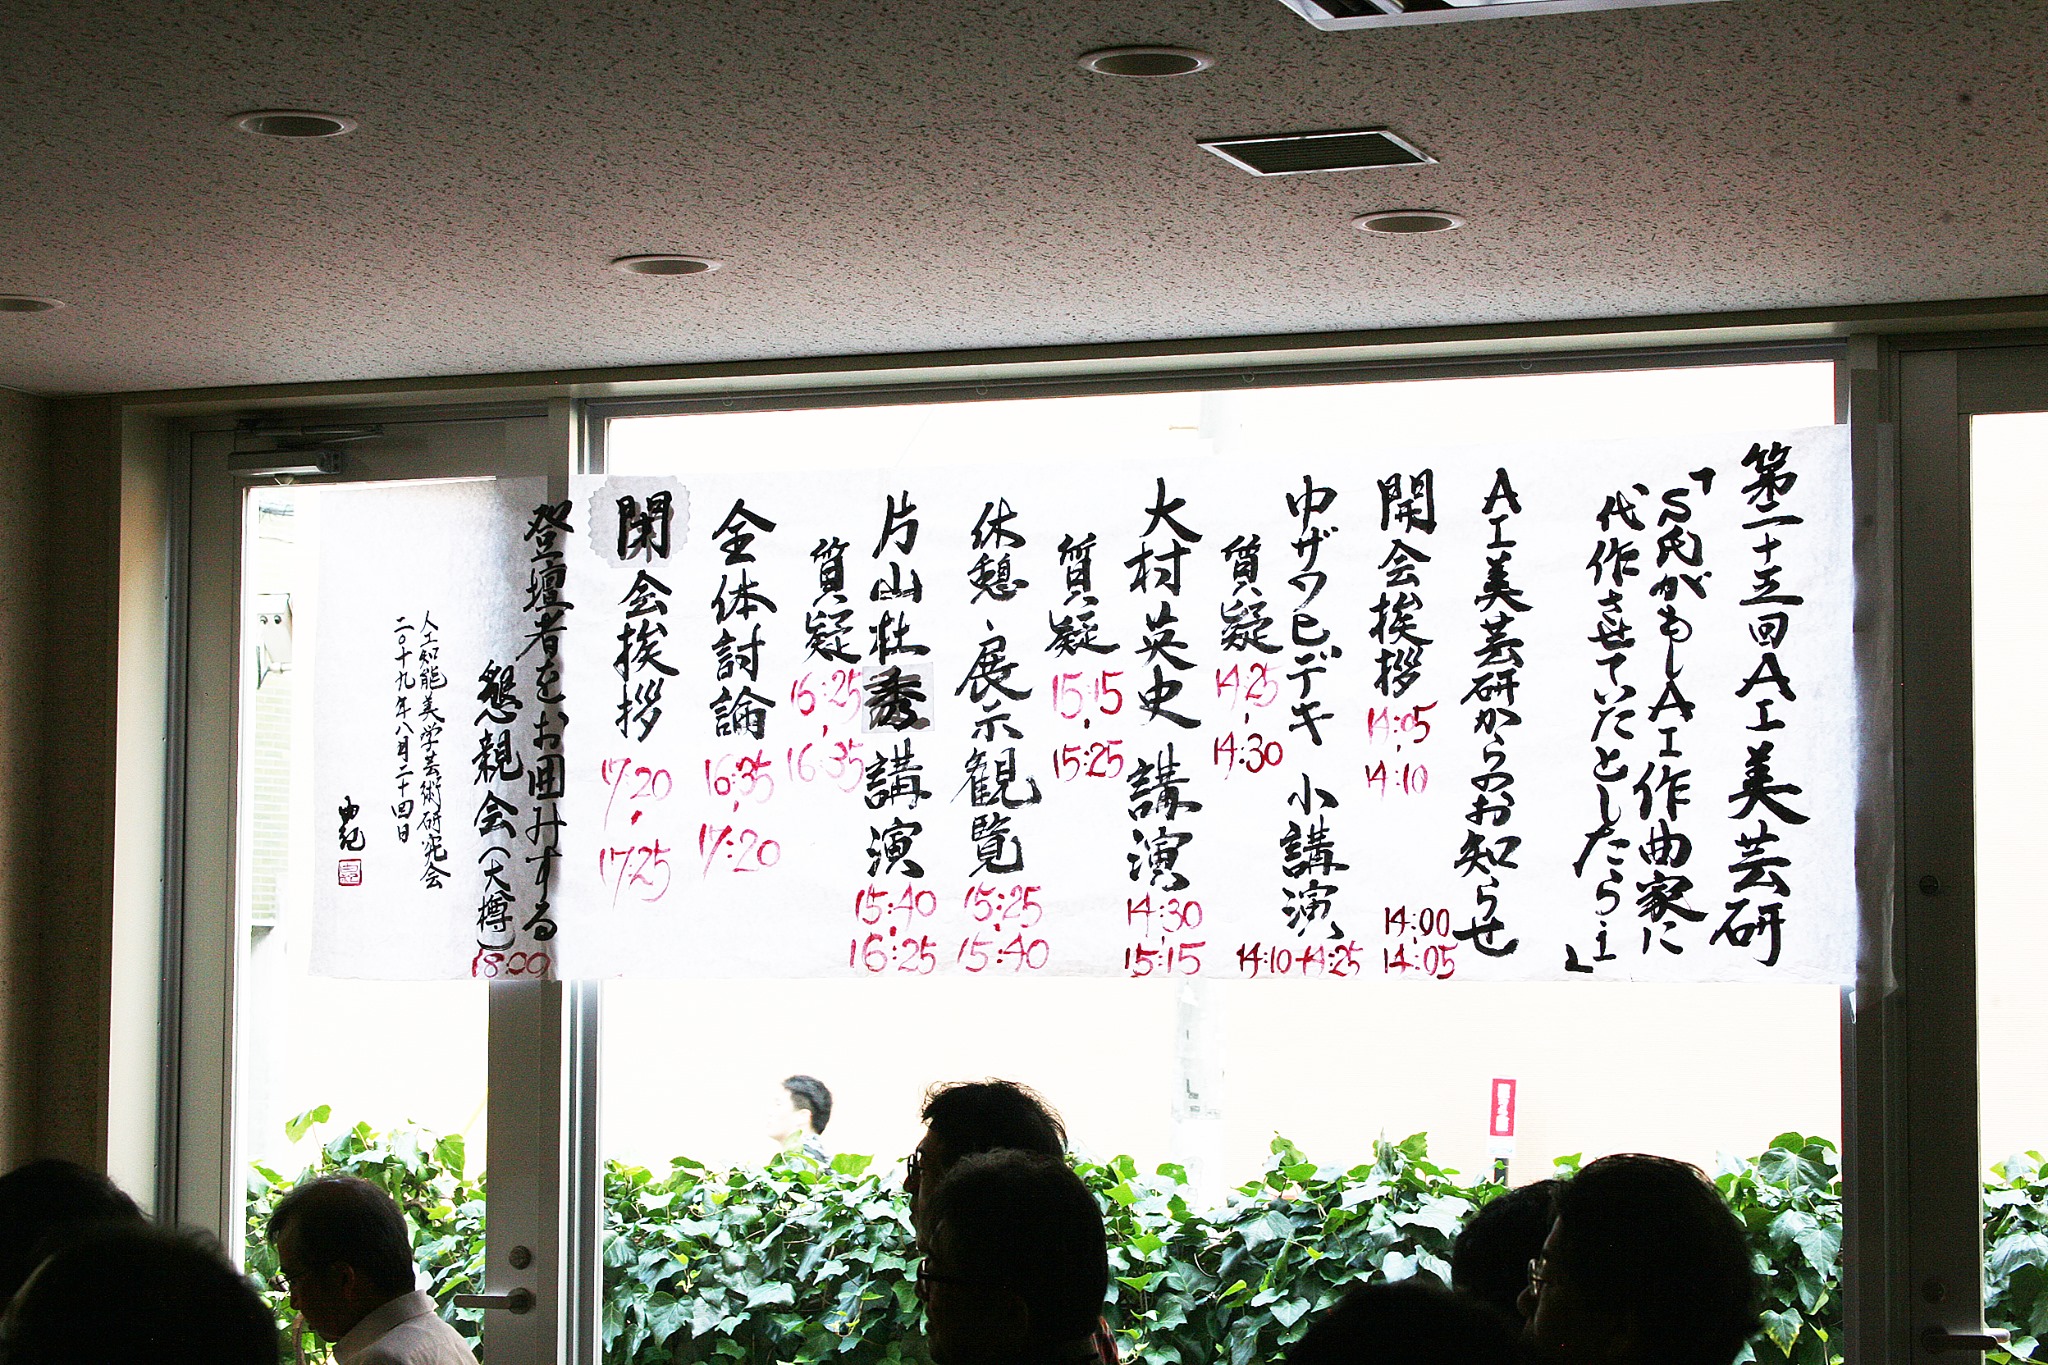 第二十五回AI美芸研
「S氏がもしAI作曲家に
代作させていたとしたら:I」
AI美芸研からのお知らせ 14:00-14:05
開会挨拶 14:05-14:10
中ザワヒデキ 小講演 14:10-14:25
質疑 14:25-14:30
大村英史 講演 14:30-15:15
質疑 15:15-15:25
休憩、展示観覧 15:25-15:40
片山杜秀 講演 15:40-16:25
質疑 16:25-16:35
全体討論 16:35-17:20
閉会挨拶 17:20-17:25
登壇者をお囲みする
懇親会(大樽) 18:00
人工知能美学芸術研究会
二〇十九年八月二十四日
由紀